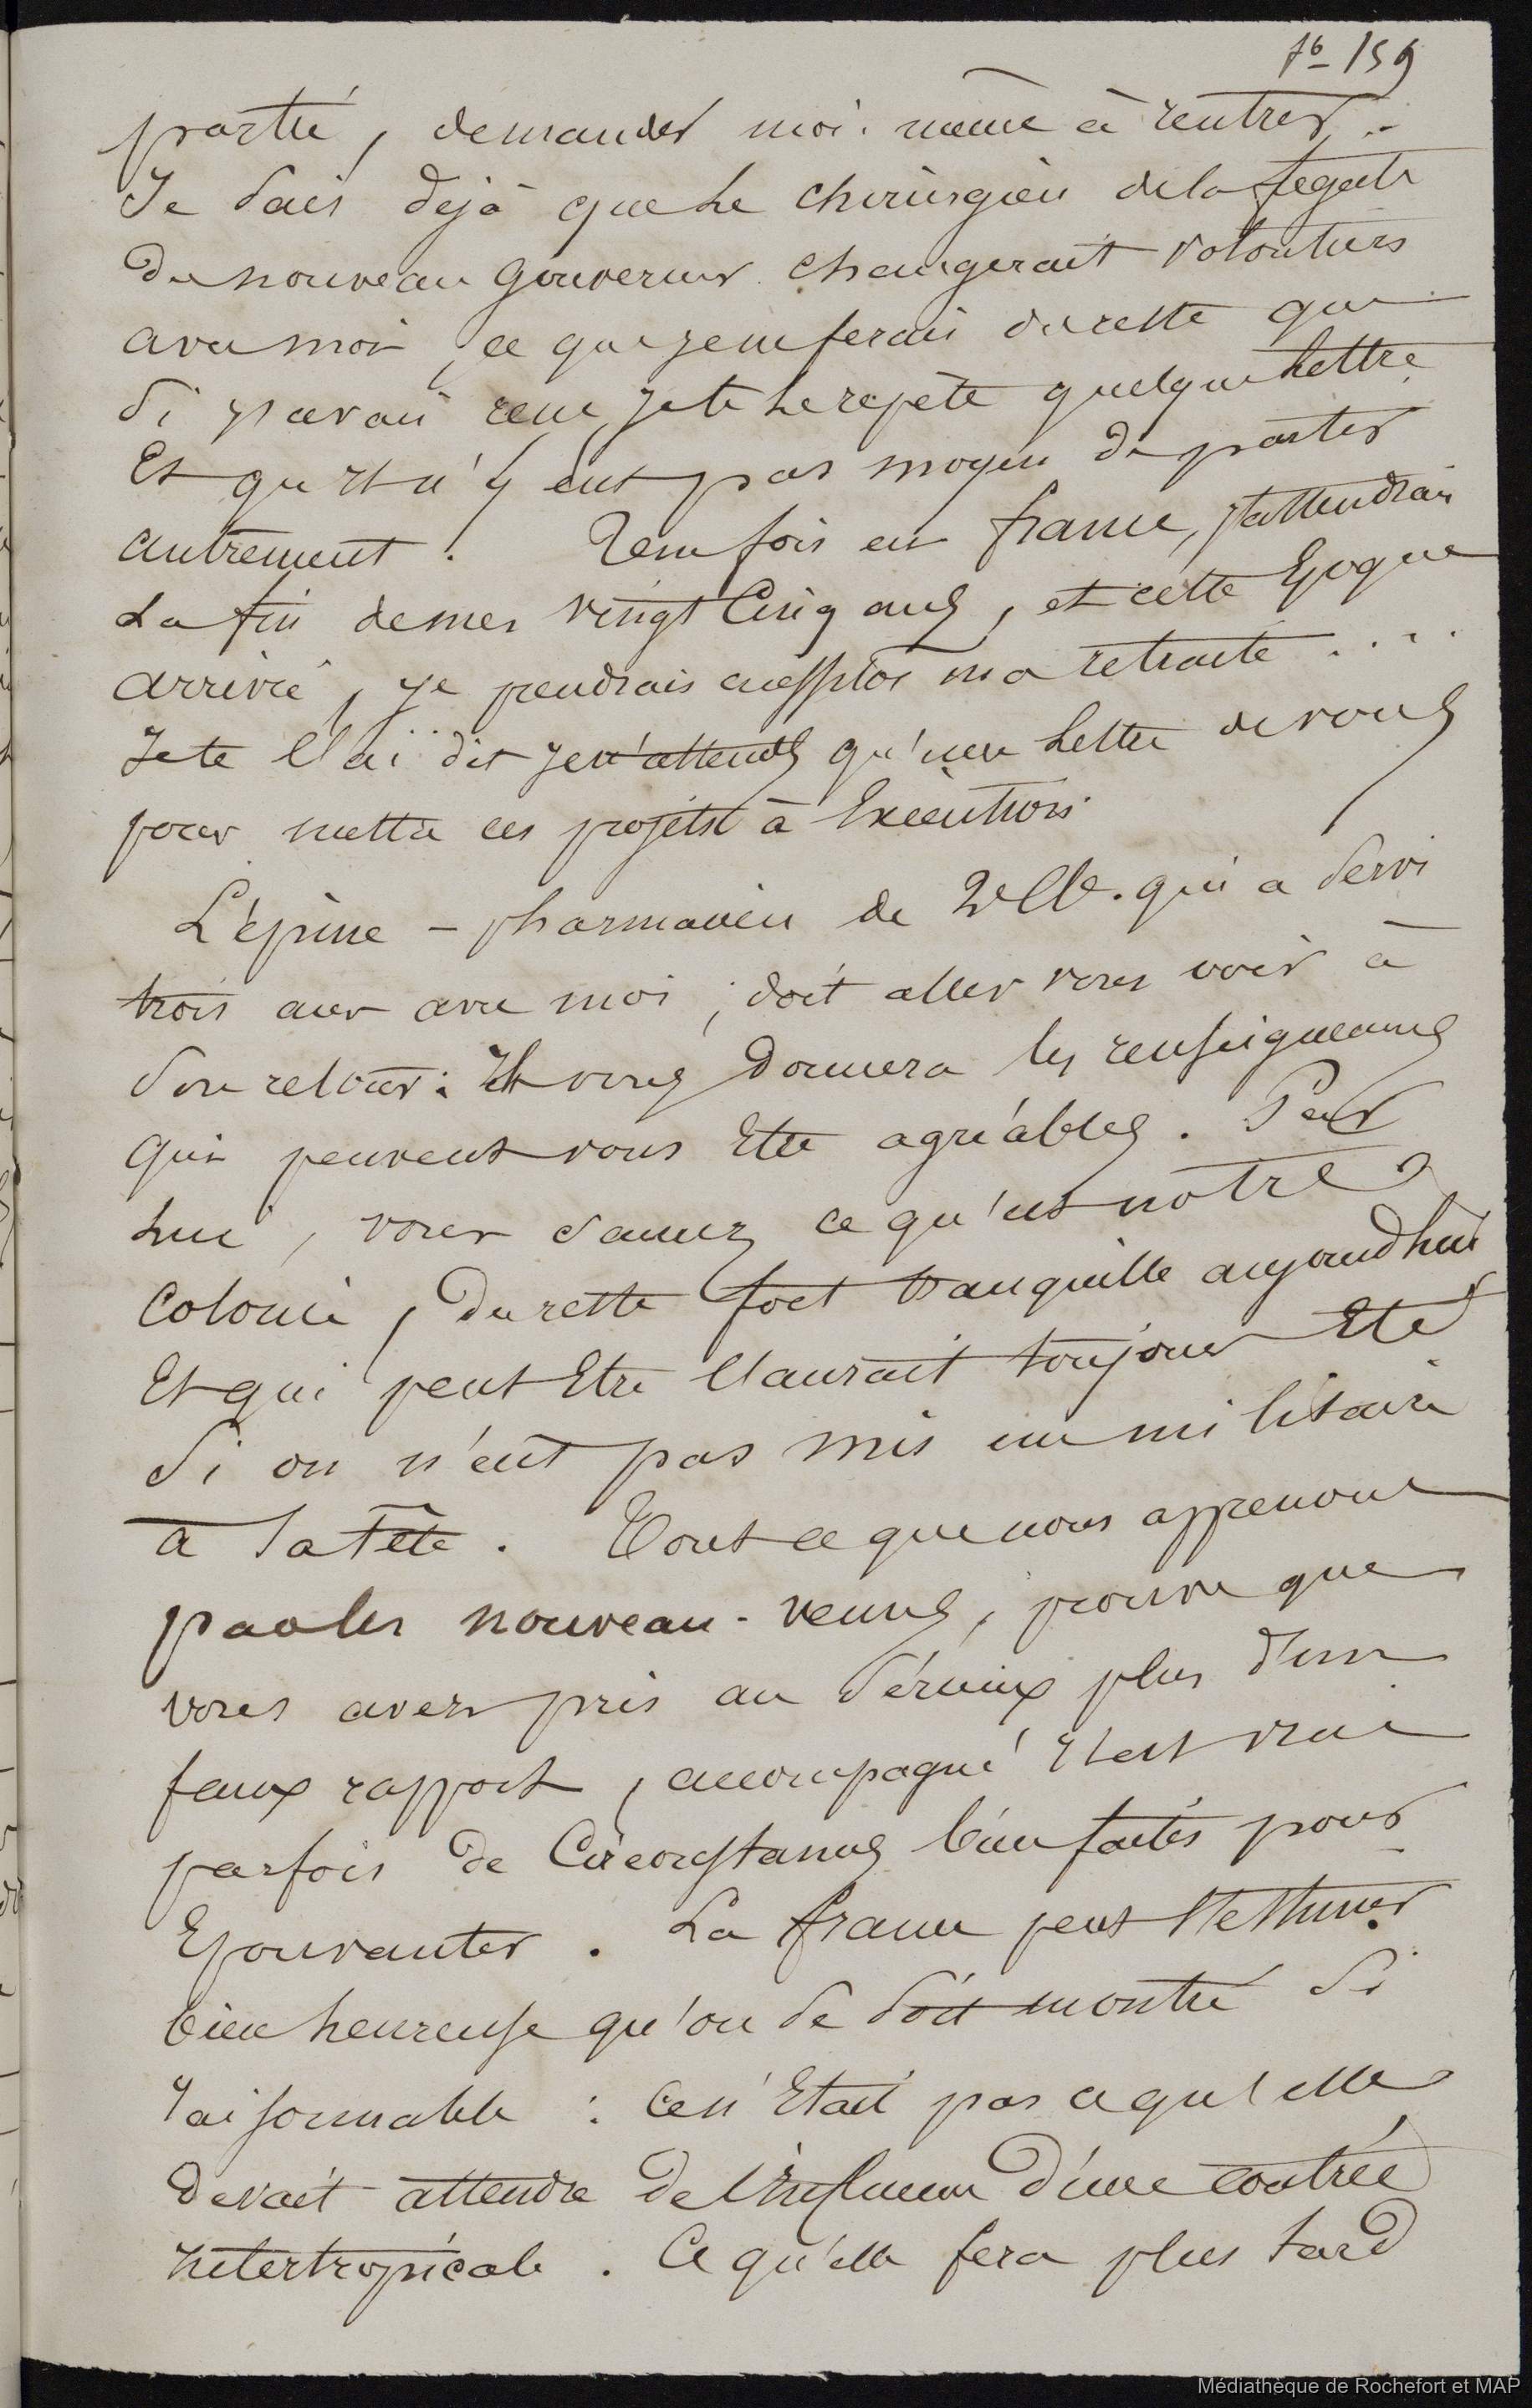 f° 159
partie, demander moi-même à rentrer.
Je sais déjà que le chirurgien de la frégate
du nouveau gouverneur changerait volontiers
avec moi, ce que je ne ferais du reste que
si j'avais reçu, je te le répète quelque lettre
Et qu'il n'y eut pas moyen de partir
autrement. Une fois en france, j'attendrais
La fin de mes vingt Cinq ans, et cette Epoque
arrivée, je prendrais aussitôt ma retraite....
Je te l'ai dit je n'attends qu'une Lettre de vous
pour mettre ces projets à Exécution.
L'épine - pharmacien de 2e Cle. qui a servi
trois ans avec moi, doit aller vous voir à
son retour. Il vous donnera les renseignements
qui peuvent vous Etre agréables. Par
Lui, vous saurez ce qu'est notre
Colonie, du reste fort tranquille aujourd'hui
Et qui peut Etre l'aurait toujours Eté
Si on n'eût pas mis un militaire
à sa tête. Tout ce que nous apprenons
par les nouveau-venus, prouve que
vous avez pris au sérieux plus d'un
faux rapport, accompagné il est vrai
parfois de Circonstances bien faites pour
Epouvanter. La france peut s'estimer
bien heureuse qu'on se soit montré si
raisonnable : Ce n'Etait pas ce qu'elle
devait attendre de l'influence d'une contrée
intertropicale. Ce qu'elle fera plus tard
Médiathèque de Rochefort et MAP